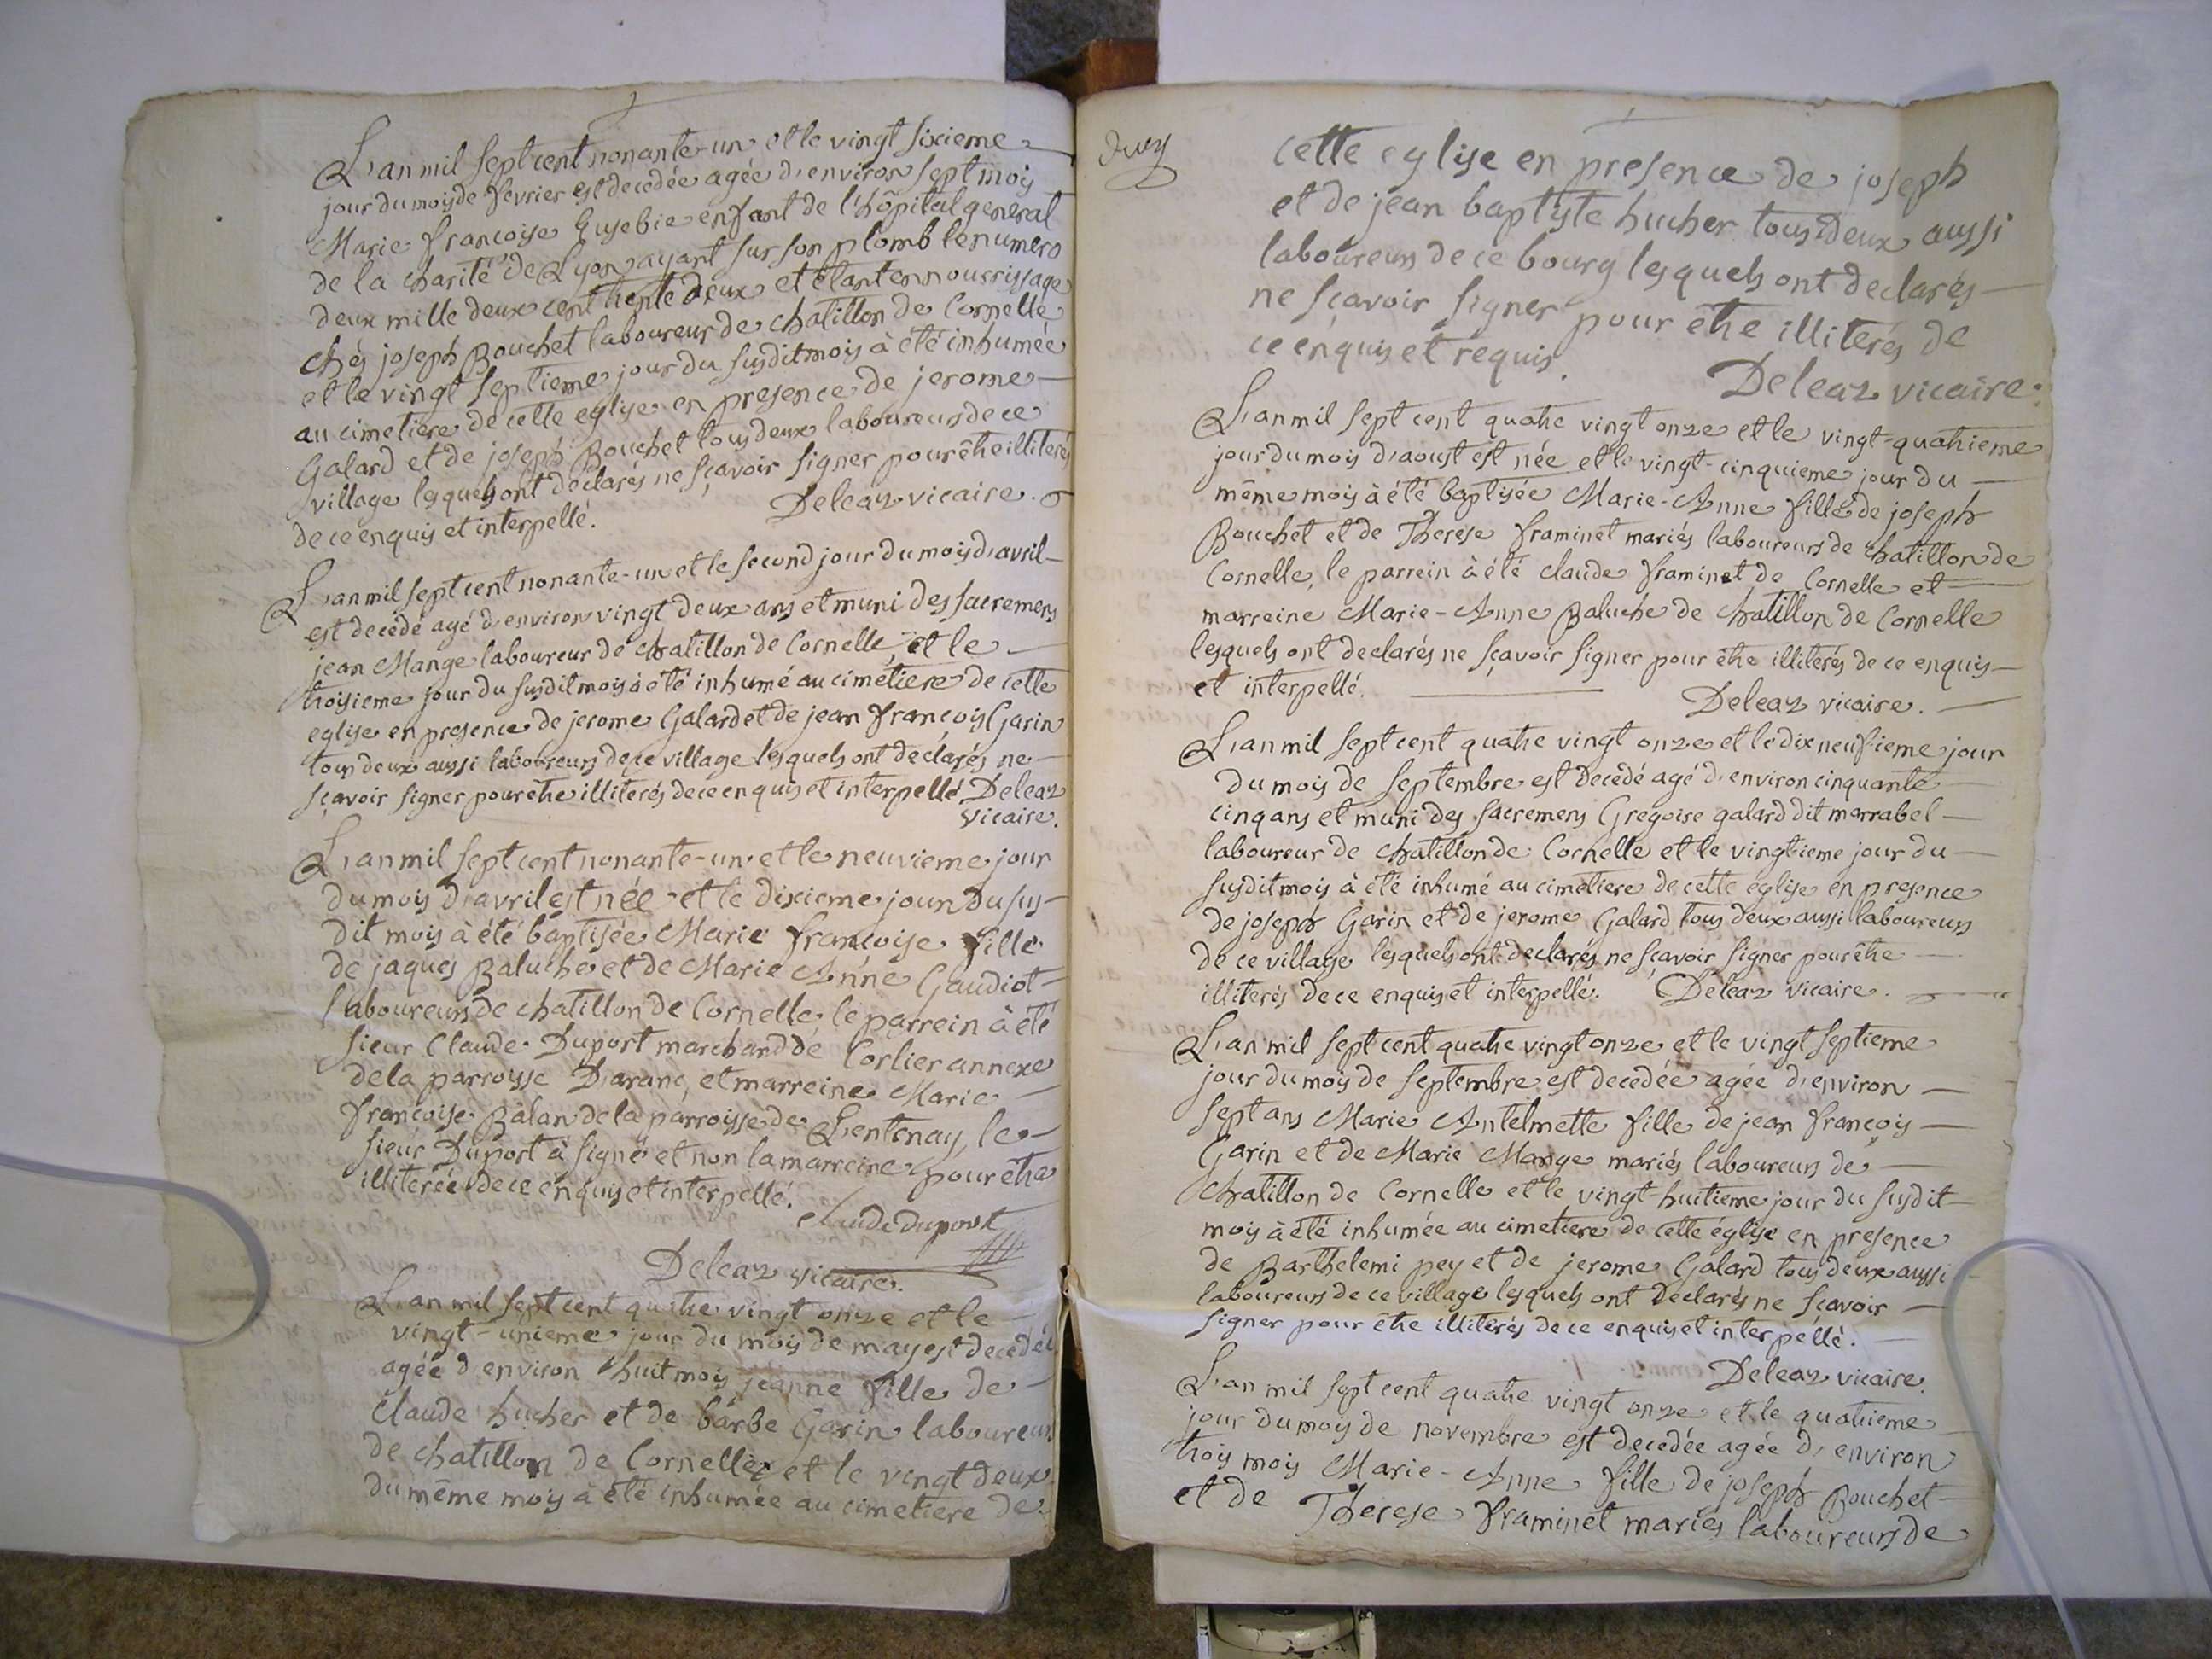 L'an mil sept cent nonante-un et le vingt sixieme
jour du mois de fevrier est decedée agée d'environ sept mois
Marie françoise Eusebie enfant de l'hôpital general
de la charité de Lyon ayant sur son plomb le numero
deux mille deux cent trente deux et étant en nourrissage
chés joseph Bouchet laboureur de chatillon de Cornelle
et le vingt septieme jour du susdit mois à été inhumée
au cimetiere de cette eglise en presence de jerome
Galard et de joseph Bouchet tous deux laboureurs de ce
village lesquels ont declarés ne sçavoir signer pour être illiterés
de ce enquis et interpellé. Deleaz vicaire.
L'an mil sept cent nonante-un et le second jour du mois d'avril
est decedé agé d'environ vingt deux ans et muni des sacremens
jean Mange laboureur de chatillon de Cornelle, et le
troisieme jour du susdit mois à eté inhumé au cimétiere de cette
eglise en presence de jerome Galard et de jean françois Garin
tous deux aussi laboureurs de ce village lesquels ont declarés ne
sçavoir signer pour être illiterés de ce enquis et interpellé Deleaz
vicaire.
L'an mil sept cent nonante-un et le neuvieme jour
du mois d'avril est née et le dixieme jour du sus-
dit mois à été baptisée Marie françoise fille
de jaques Baluche et de Marie Anne Gaudiot
laboureurs de chatillon de Cornelle le parrein à été
sieur Claude Duport marchand de Corlier annexe
de la parroisse D'aranc, et marreine Marie
françoise Balan de la parroisse de Lentenay, le
sieur Duport à signé et non la marreine pour être
illiterée de ce enquis et interpellé.
claude duport
Deleaz vicaire.
L'an mil sept cent quatre vingt onze et le
vingt-unieme jour du mois de may est decedée
agée d'environ huit mois jeanne fille de
Claude hucher et de barbe Garin laboureurs
de chatillon de Cornelle et le vingt deux
du même mois à été inhumée au cimetiere de
cette eglise en presence de joseph
et de jean baptiste hucher tous deux aussi
laboureurs de ce bourg lesquels ont declarés
ne sçavoir signer pour être illiterés de
ce enquis et requis.
Deleaz vicaire.
L'an mil sept cent quatre vingt onze et le vingt-quatrieme
jour du mois d'aoust est née et le vingt-cinquieme jour du
même mois à été baptisée Marie-Anne fille de joseph
Bouchet et de Therese framinet mariés laboureurs de chatillon de
Cornelle, le parrein à été claude framinet de Cornelle et
marreine Marie-Anne Baluche de chatillon de Cornelle
lesquels ont declarés ne sçavoir signer pour être illiterés de ce enquis
et interpellé. Deleaz vicaire.
L'an mil sept cent quatre vingt onze et le dix neufieme jour
du mois de septembre est decedé agé d'environ cinquante
cinq ans et muni des sacremens Gregoire galard dit marrabel
laboureur de chatillon de Cornelle et le vingtieme jour du
susdit mois à été inhumé au cimetiere de cette eglise en presence
de joseph Garin et de jerome Galard tous deux aussi laboureurs
de ce village lesquels ont declarés ne sçavoir signer pour être
illiterés de ce enquis et interpellé. Deleaz vicaire.
L'an mil sept cent quatre vingt onze et le vingt septieme
jour du mois de septembre est decedée agée d'environ
sept ans Marie Antelmette fille de jean françois
Garin et de Marie Mange mariés laboureurs de
chatillon de Cornelle et le vingt-huitieme jour du susdit
mois à été inhumée au cimetiere de cette église en presence
de Barthelemi pey et de jerome Galard tous deux aussi
laboureurs de ce village lesquels ont declarés ne sçavoir
signer pour être illiterés de ce enquis et interpellé.
Deleaz vicaire.
L'an mil sept cent quatre vingt onze et le quatrieme
jour du mois de novembre est decedée agée d'environ
trois mois Marie-Anne fille de joseph Bouchet
et de Therese framinet mariés laboureurs de